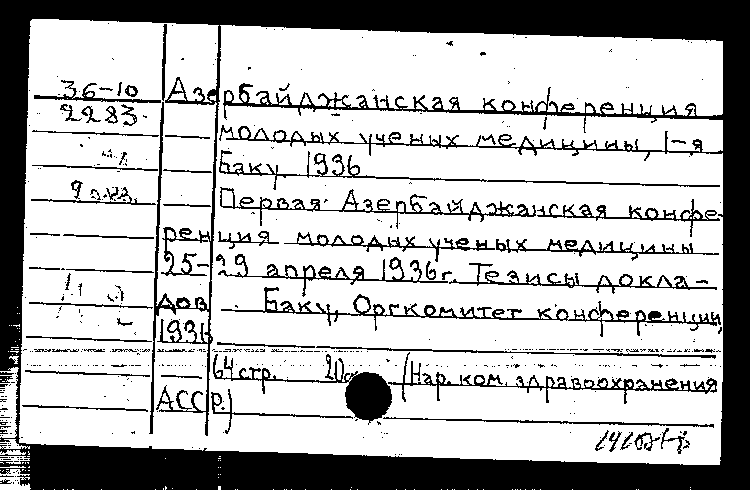 36-10 Азербайджанская конференция
2283. молодых ученых медицины, 1-я
Баку. 1936
Первая Азербайджанская конфе-
ренция молодых ученых медицины
25-29 апреля 1936 г. Тезисы докла-
дов. Баку, Оргкомитет конференции,
1936
64 стр. 20 (Нар. ком. здравоохранения
АССР.)